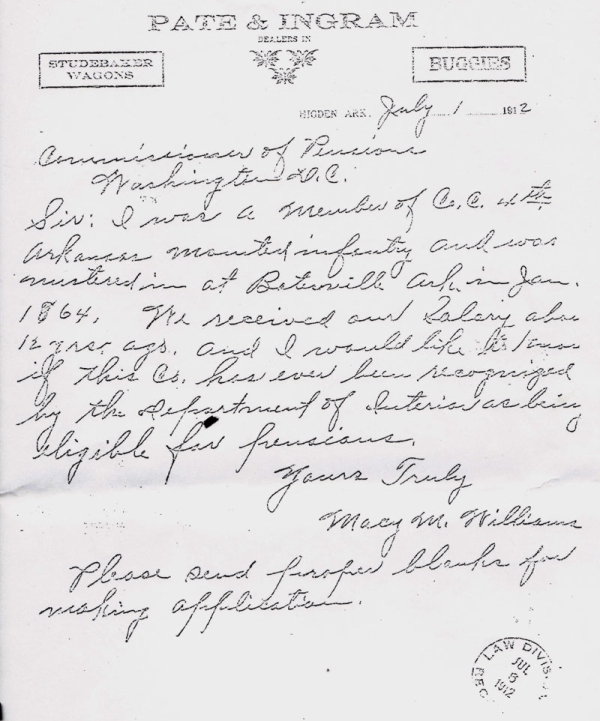 PATE & INGRAM
DEALERS IN
STUDEBAKER
WAGONS
BUGGIES
HIGDEN ARK. July 1 1912
Commissioner of Pensions
Washington D.C.
Sir: I was a member of Co. C. 4th
Arkansas mounted infantry and was
mustered in at Batesville Ark in Jan.
1864. We received our Salary abou
12 yrs. ago. and I would like to know
if this Co. has ever been recognized
by the Department of Interior as being
eligible for pensions.
Yours Truly
Macy M. Williams
Please send proper blanks for
making application.
LAW DIVIS
JUL
1912
REC